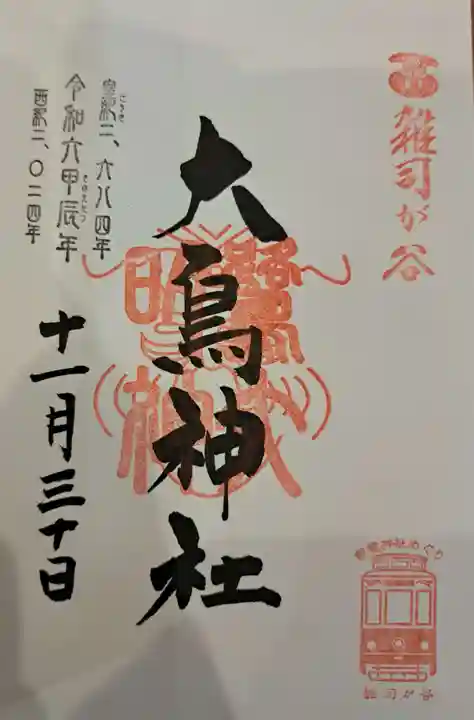 雑司が谷
大鳥神社
皇紀二、六八四年
こうき
令和六甲辰年
きのえたつ
西紀二、〇二四年
十一月三十日
雑司が谷